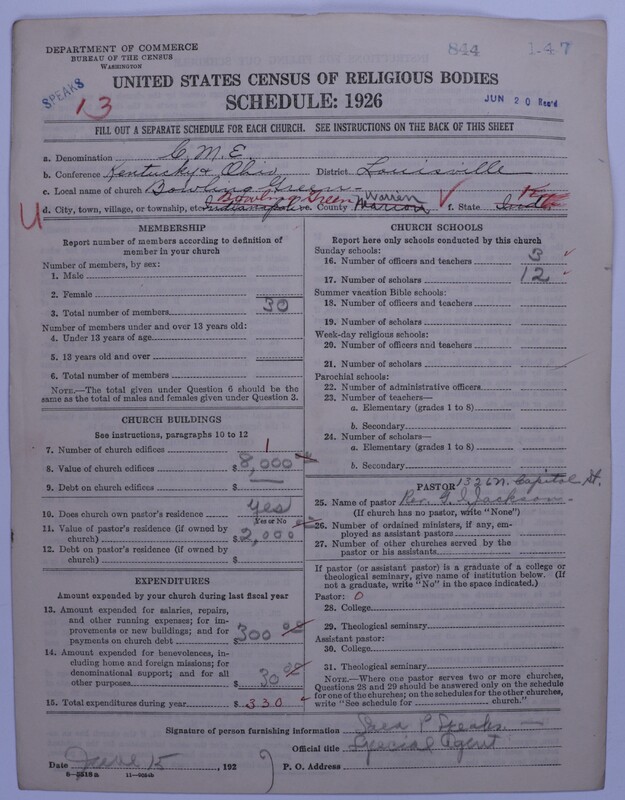 DEPARTMENT OF COMMERCE
BUREAU OF THE CENSUS
WASHINGTON
844 1-47
SPEAKS
13
UNITED STATES CENSUS OF RELIGIOUS BODIES
SCHEDULE: 1926
JUN 20 Rec'd
FILL OUT A SEPARATE SCHEDULE FOR EACH CHURCH. SEE INSTRUCTIONS ON THE BACK OF THIS SHEET
a. Denomination C.M.E.
b. Conference Kentucky & Ohio District Louisville
c. Local name of church Bowling Green
d. City, town, village, or township, etc. Indianapolis Bowling Green e. County Marion Warren f. State
MEMBERSHIP
Report number of members according to definition of
member in your church
Number of members, by sex:
1. Male
2. Female
3. Total number of members 30
Number of members under and over 13 years old:
4. Under 13 years of age
5. 13 years old and over
6. Total number of members
NOTE.—The total given under Question 6 should be the
same as the total of males and females given under Question 3.
CHURCH BUILDINGS
See instructions, paragraphs 10 to 12
7. Number of church edifices 1
8. Value of church edifices $8,000
9. Debt on church edifices $
10. Does church own pastor's residence yes
Yes or No
11. Value of pastor's residence (if owned by
church) $2,000
12. Debt on pastor's residence (if owned by
church) $
EXPENDITURES
Amount expended by your church during last fiscal year
13. Amount expended for salaries, repairs,
and other running expenses; for im-
provements or new buildings; and for
payments on church debt $300 00
14. Amount expended for benevolences,
including home and foreign missions; for
denominational support; and for all
other purposes $30 00
15. Total expenditures during year $330
CHURCH SCHOOLS
Report here only schools conducted by this church
Sunday schools:
16. Number of officers and teachers 3
17. Number of scholars 12
Summer vacation Bible schools:
18. Number of officers and teachers
19. Number of scholars
Week-day religious schools:
20. Number of officers and teachers
21. Number of scholars
Parochial schools:
22. Number of administrative officers
23. Number of teachers—
a. Elementary (grades 1 to 8)
b. Secondary
24. Number of scholars—
a. Elementary (grades 1 to 8)
b. Secondary
PASTOR 1326 N. Capitol St.
25. Name of pastor Rev. G. I. Jackson
(If church has no pastor, write "None")
26. Number of ordained ministers, if any, em-
ployed as assistant pastors
27. Number of other churches served by the
pastor or his assistants
If pastor (or assistant pastor) is a graduate of a college or
theological seminary, give name of institution below. (If
not a graduate, write "No" in the space indicated.)
Pastor: 0
28. College
29. Theological seminary
Assistant pastor:
30. College
31. Theological seminary
NOTE.—Where one pastor serves two or more churches,
Questions 28 and 29 should be answered only on the schedule
for one of the churches; on the schedules for the other churches,
write "See schedule for church."
Signature of person furnishing information Speaks
Official title Special Agent
Date June 15, 192 P. O. Address